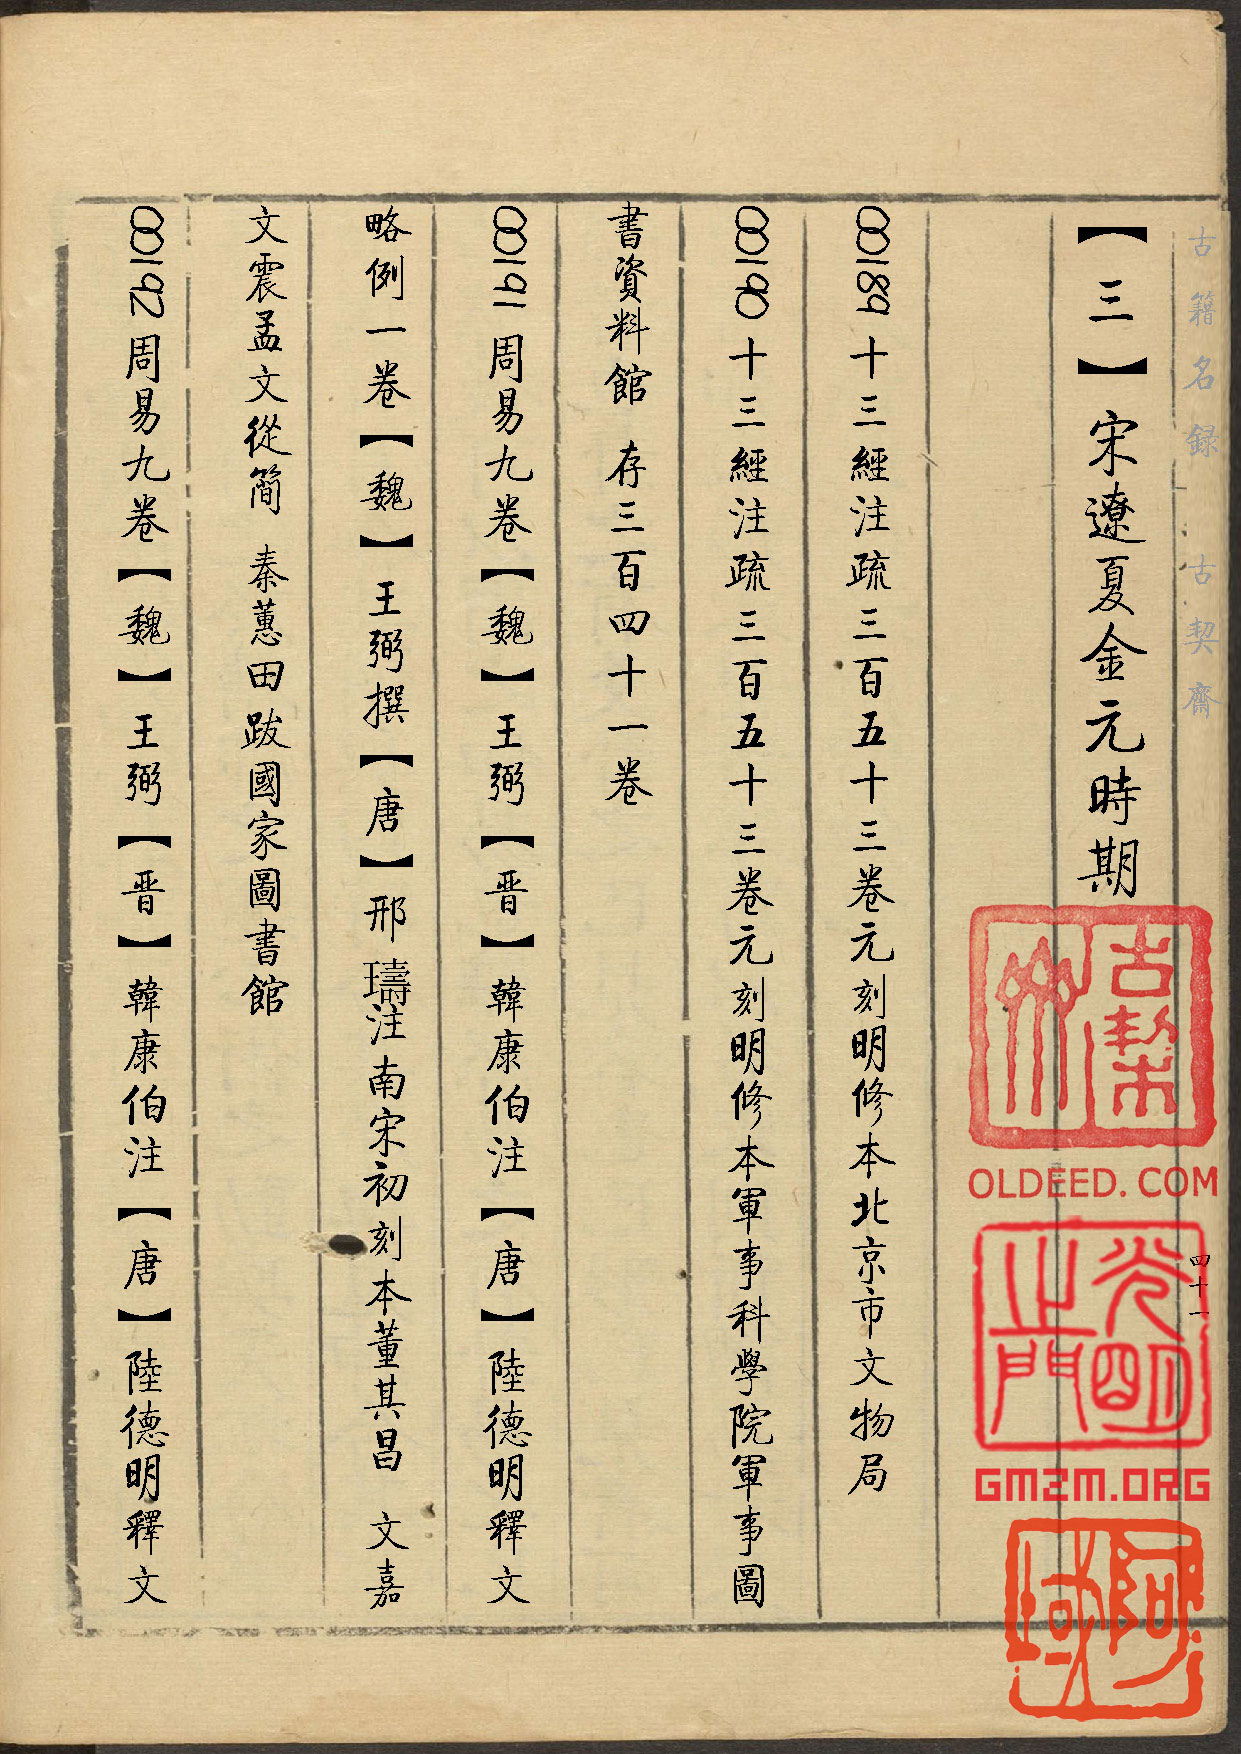 古籍名録 古契齋
四十一
【三】宋遼夏金元時期
00189 十三經注疏三百五十三卷元刻明修本北京市文物局
00190 十三經注疏三百五十三卷元刻明修本軍事科學院軍事圖
書資料館 存三百四十一卷
00191 周易九卷【魏】王弼【晋】韓康伯注【唐】陸德明釋文
略例一卷【魏】王弼撰【唐】邢璹注南宋初刻本董其昌 文嘉
文震孟文從簡 秦蕙田跋國家圖書館
00192 周易九卷【魏】王弼【晋】韓康伯注【唐】陸德明釋文
古契齋
OLDEED.COM
光明之門
GMZM.ORG
阿域